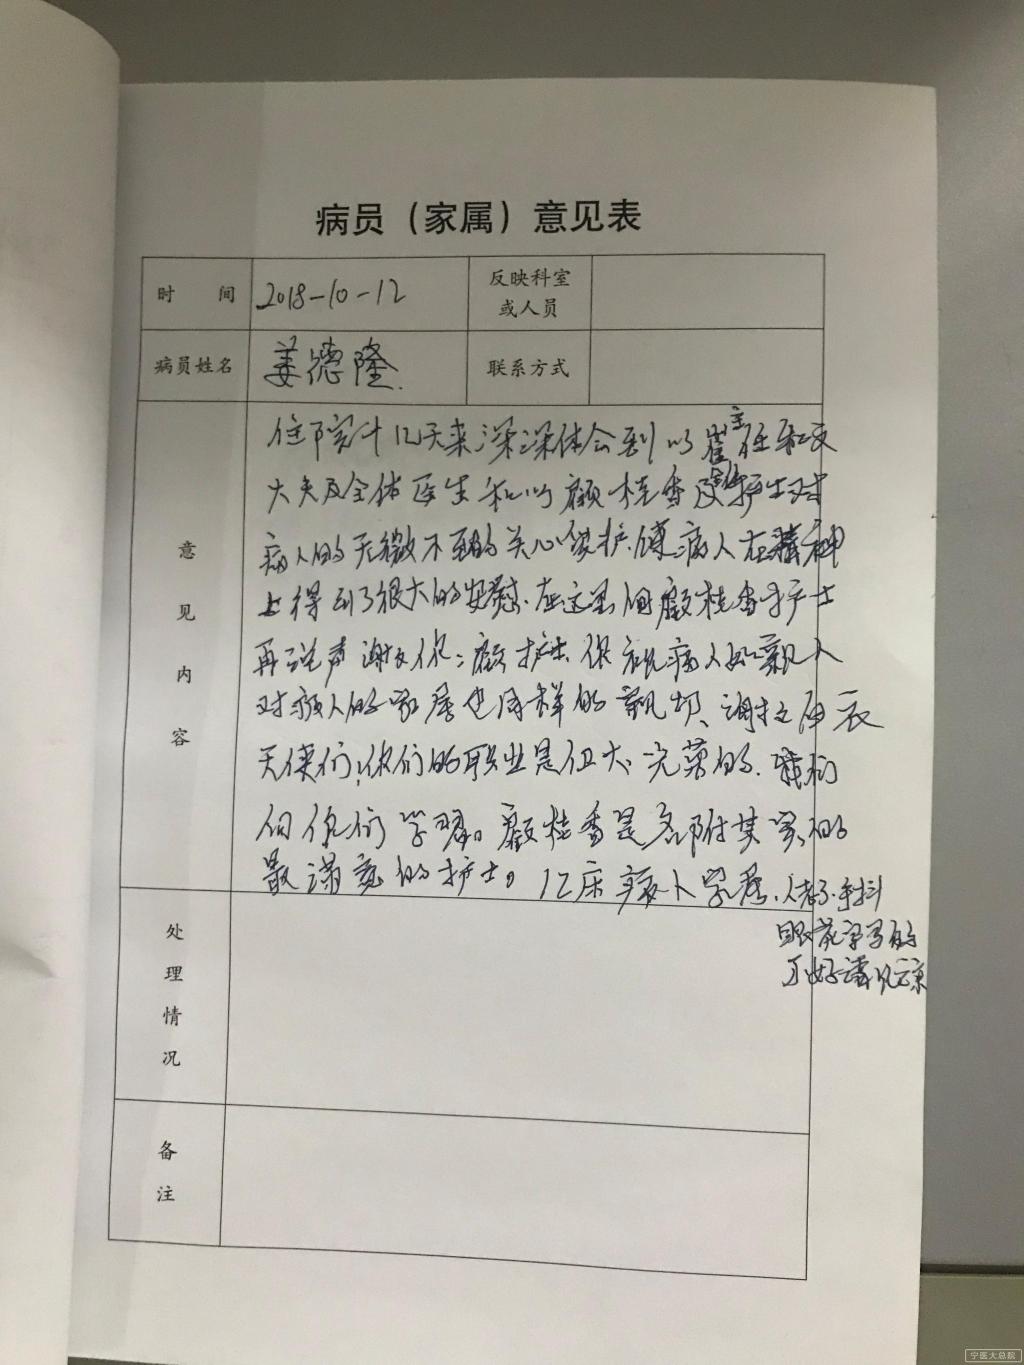 病员（家属）意见表
时 间 2018-10-12 反映科室或人员
病员姓名 姜德隆. 联系方式
意见内容
住院十几天来深深体会到以崔主任和
大夫及全体医生和以顾桂香及护士对
病人的无微不至的关心爱护、使病人在精神
上得到了很大的安慰、在这里向顾桂香护士
再说声谢谢你；顾护士你视病人如亲人
对病人的家属也同样的亲切、谢谢白衣
天使们，你们的职业是伟大、光荣的、我们
向你们学习。顾桂香是
最满意的护士。12床病人家属、人老了、手抖
眼花字写的
不好请见谅
处理情况
备注
宁医大总院